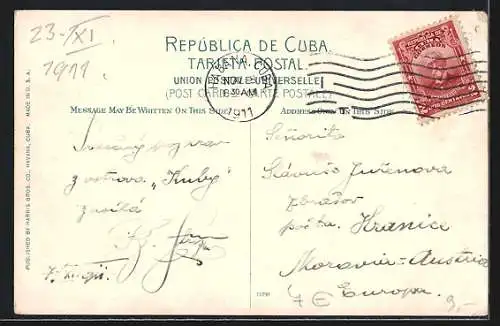 23-XI
1911
REPÚBLICA DE CUBA.
TARJETA POSTAL
UNION POSTALE UNIVERSELLE
(POST CARD - CARTE POSTALE)
HABANA, CUBA
NOV
8 30 AM
1911
CORREOS
MESSAGE MAY BE WRITTEN ON THIS SIDE
ADDRESS ONLY ON THIS SIDE
PUBLISHED BY HARRIS BROS. CO., HAVANA, CUBA. MADE IN U. S. A.
Srdečný pozdrav
z ostrova „Kuby"
zasílá
Señorita
zbrašov
pošta. Hranice
Moravia-Austria
Europa.
7 €
9.-